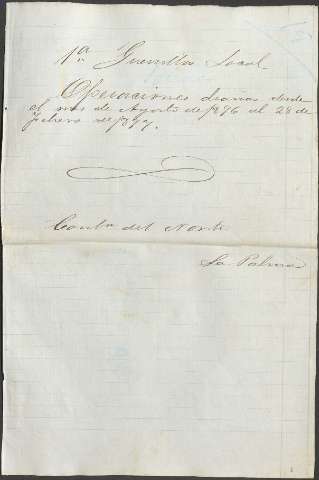 1ª Guerrilla Local
Operaciones diarias desde
el mes de Agosto de 1896 al 28 de
febrero de 1897.
Consn del Norte
La Palma